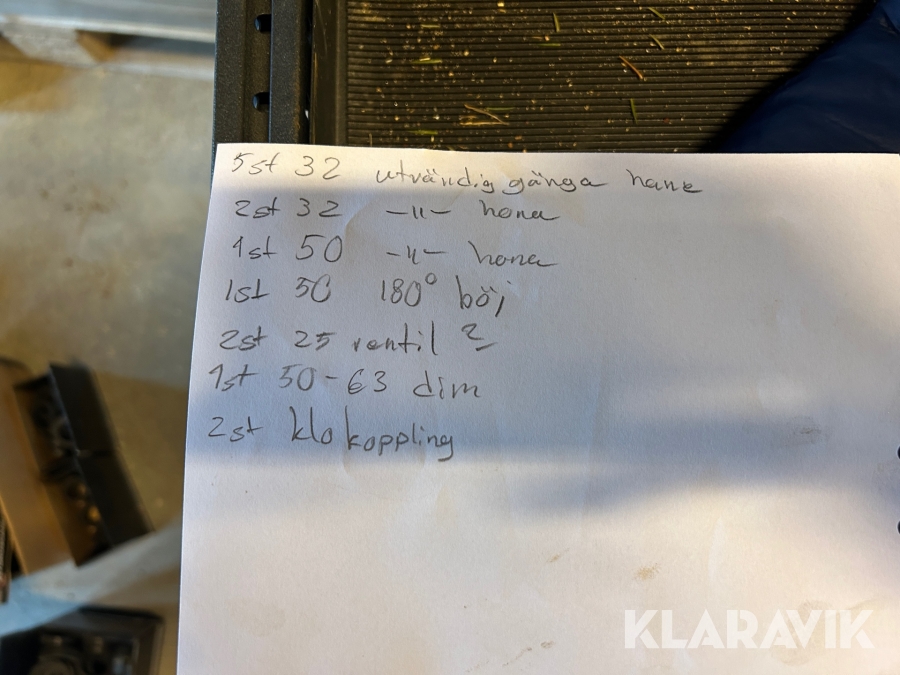 5st 32 utvändig gänga hane
2st 32 -"- hona
1st 50 -"- hona
1st 50 180° böj
2st 25 ventil ?
1st 50-63 dim
2st klokoppling
KLARAVIK